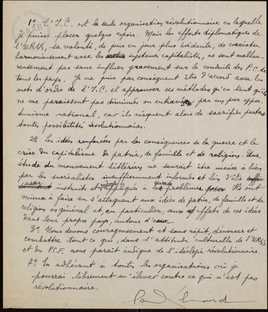 1º L'I.C. est la seule organisation révolutionnaire en laquelle
je puisse placer quelque espoir. Mais les efforts diplomatiques de
l'URSS, sa volonté, de jour en jour plus évidente, de coexister
harmonieusement avec les systèmes capitalistes, ne sont
pas sans influer gravement sur la conduite des P.C. de
tous les pays. Je ne puis par conséquent être d'accord avec les
mots d'ordre de l'I.C. et approuver ces méthodes qu'en tant qu'ils
ne me paraissent pas diminués ou par un pur
national, car ils risquent alors de sacrifier
toutes possibilités révolutionnaires.
2º Les idées renforcées par les conséquences de la guerre et la
crise du capitalisme. De patrie, de famille et de religion. Une
étude du mouvement littéraire ne saurait être menée à bien
par les surréalistes insuffisamment informés et
instruits Ils ont
mieux à faire en s'attaquant aux idées de patrie, de famille et de
religion en général et, en particulier, aux effets de ces idées
dans leur propre pays, autour d'eux.
3º Nous devons courageusement et sans répit, dénoncer et
combattre tout ce qui, dans l'attitude culturelle de l'URSS
et du P.C.F. nous paraît indigne de l'idéologie révolutionnaire.
4º En adhérant à toutes les organisations où je
pourrai librement m'élever contre ce qui n'est pas
révolutionnaire.
Paul Éluard